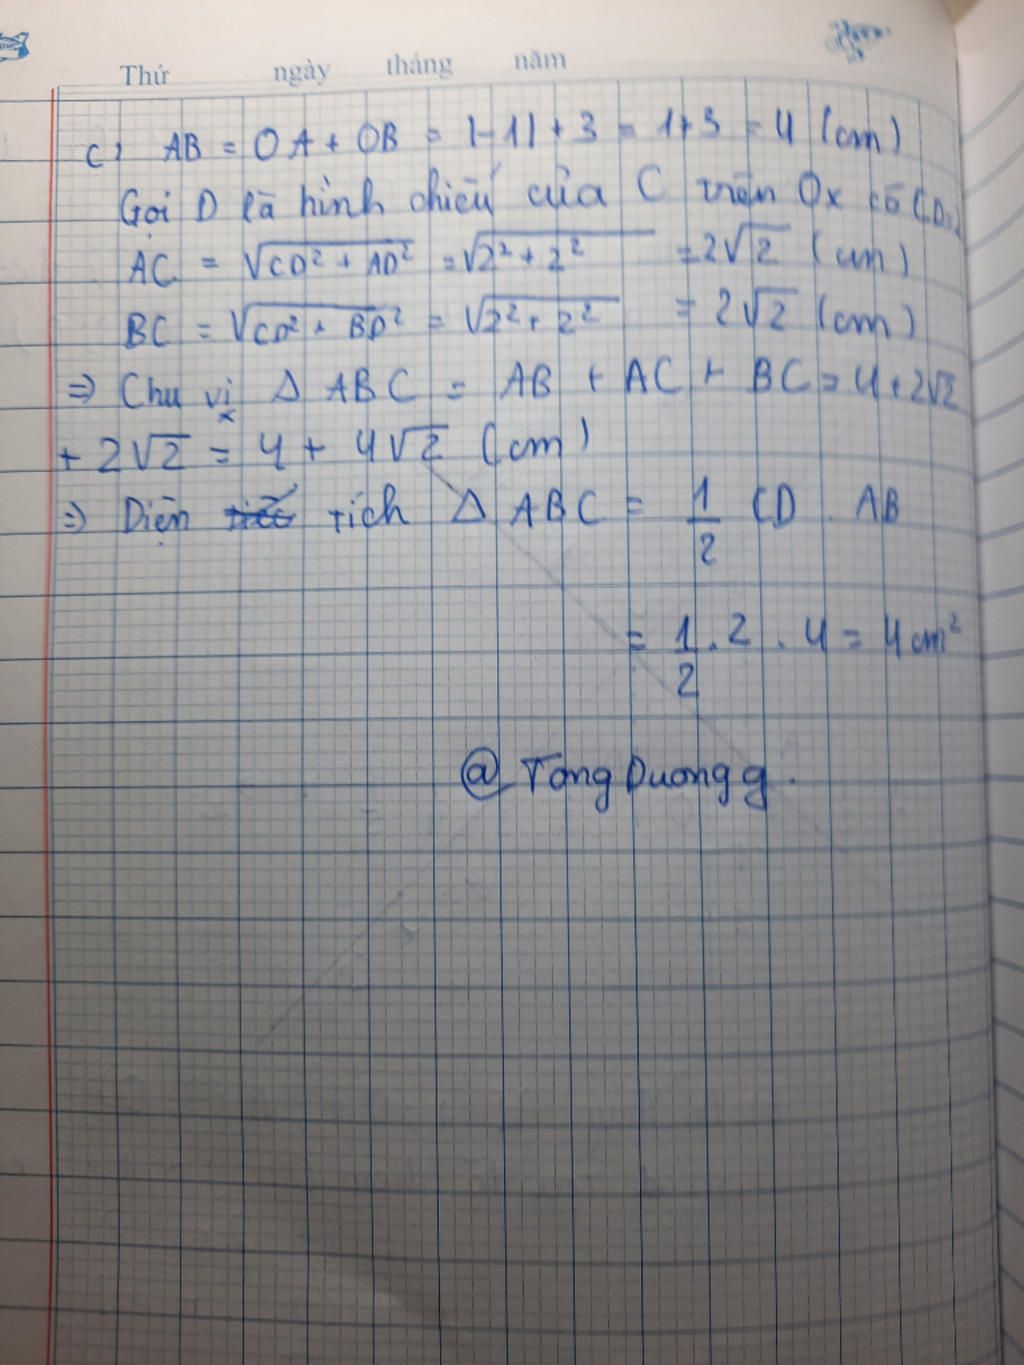 Thứ ngày tháng năm
c) AB = OA + OB = |-1| + 3 = 1+3 = 4 (cm)
Gọi D là hình chiếu của C trên Ox có CD=2
AC = √CD² + AD² = √2² + 2² = 2√2 (cm)
BC = √CD² + BD² = √2² + 2² = 2√2 (cm)
=> Chu vi Δ ABC = AB + AC + BC = 4 + 2√2
+ 2√2 = 4 + 4√2 (cm)
=> Diện tích Δ ABC = 1/2 CD . AB
= 1/2 . 2 . 4 = 4 cm²
@ Tong Duong g .